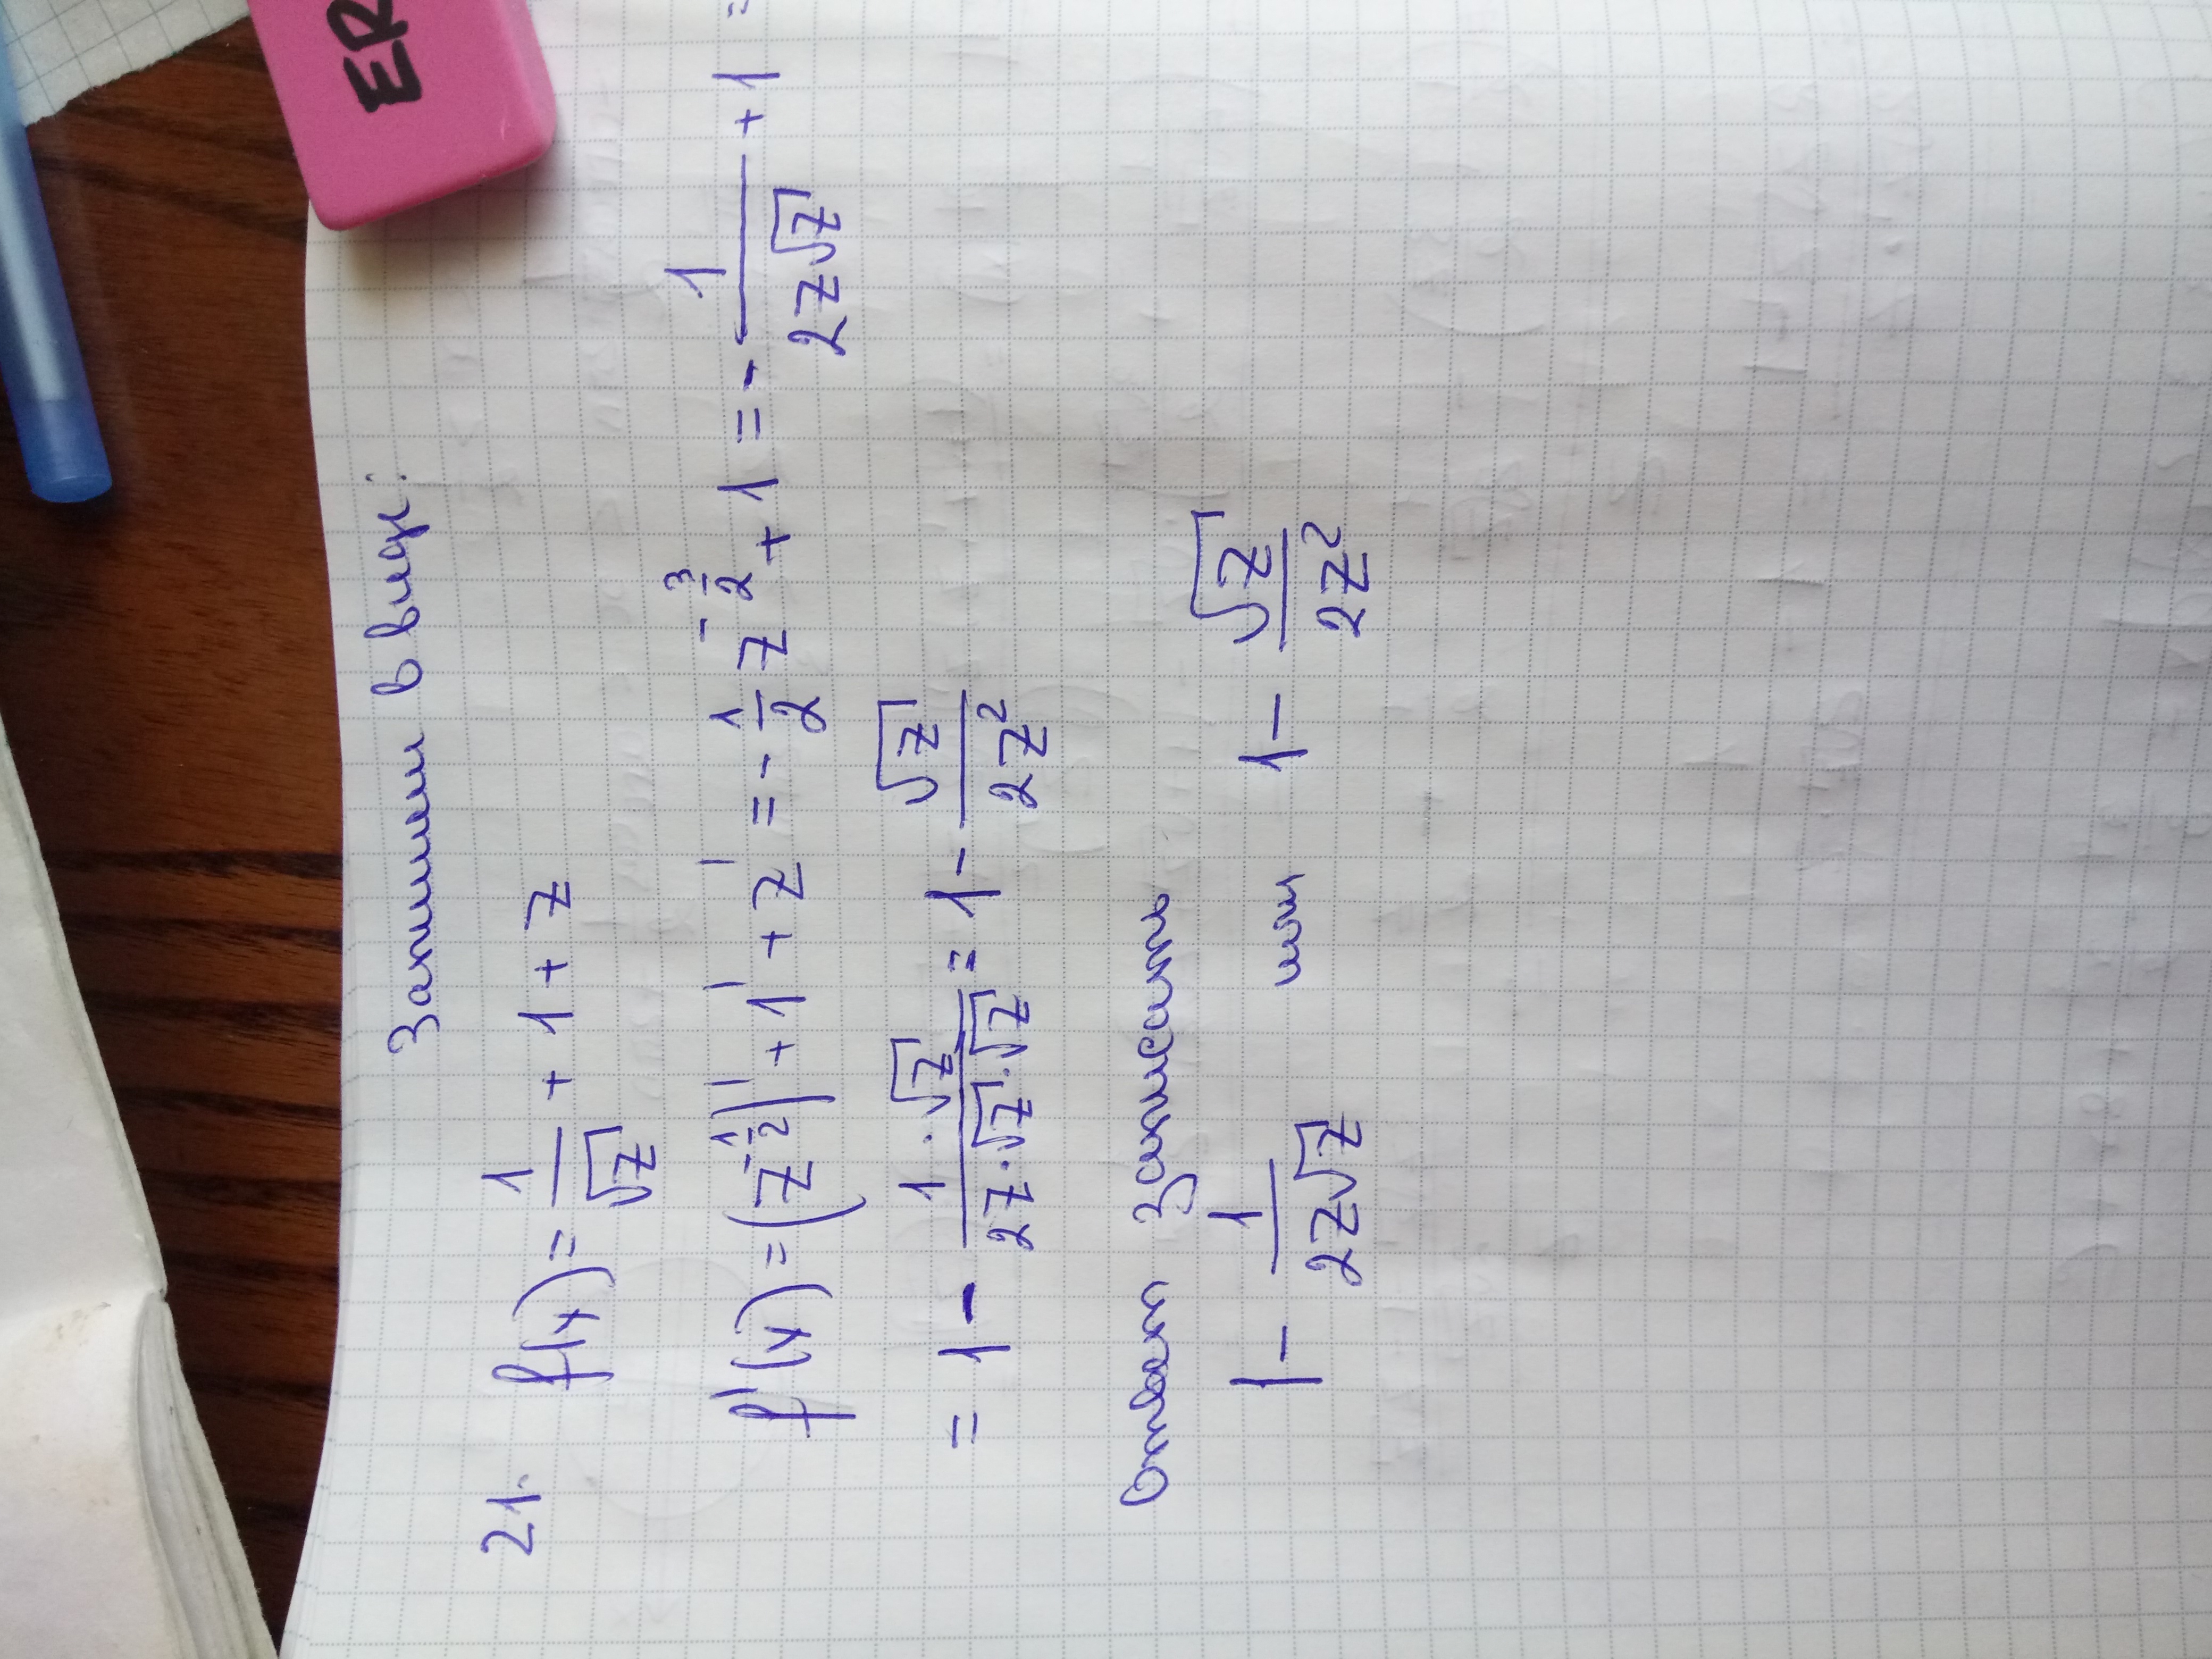 Запишем в виде:
21. f(x) = 1/√z + 1 + z
f'(x) = (z^(-1/2))' + 1' + z' = - 1/2 z^(-3/2) + 1 = - 1/(2z√z) + 1 =
= 1 - (1·√z)/(2z·√z·√z) = 1 - √z/(2z²)
Ответ записать
1 - 1/(2z√z) или 1 - √z/(2z²)
ER